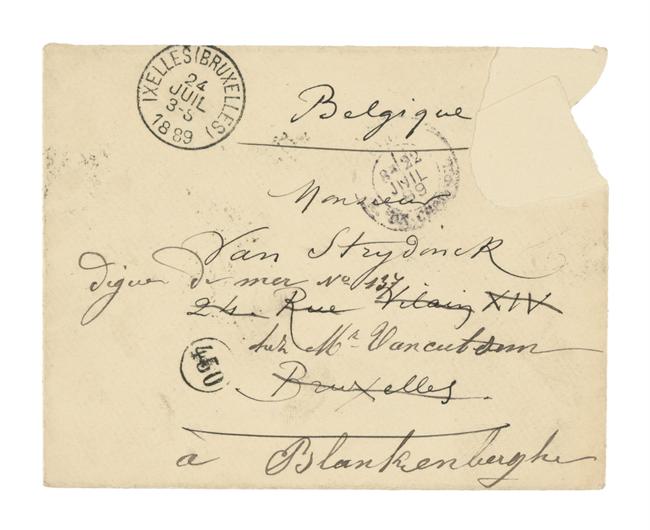 IXELLES (BRUXELLES)
24
JUIL
3-S
1889
Belgique
22
JUIL
89
Monsieur
Van Strydonck
digue de mer No 137
24 Rue Vilain XIV
chez Mr. Vancutsem
450
Bruxelles.
à Blankenberghe